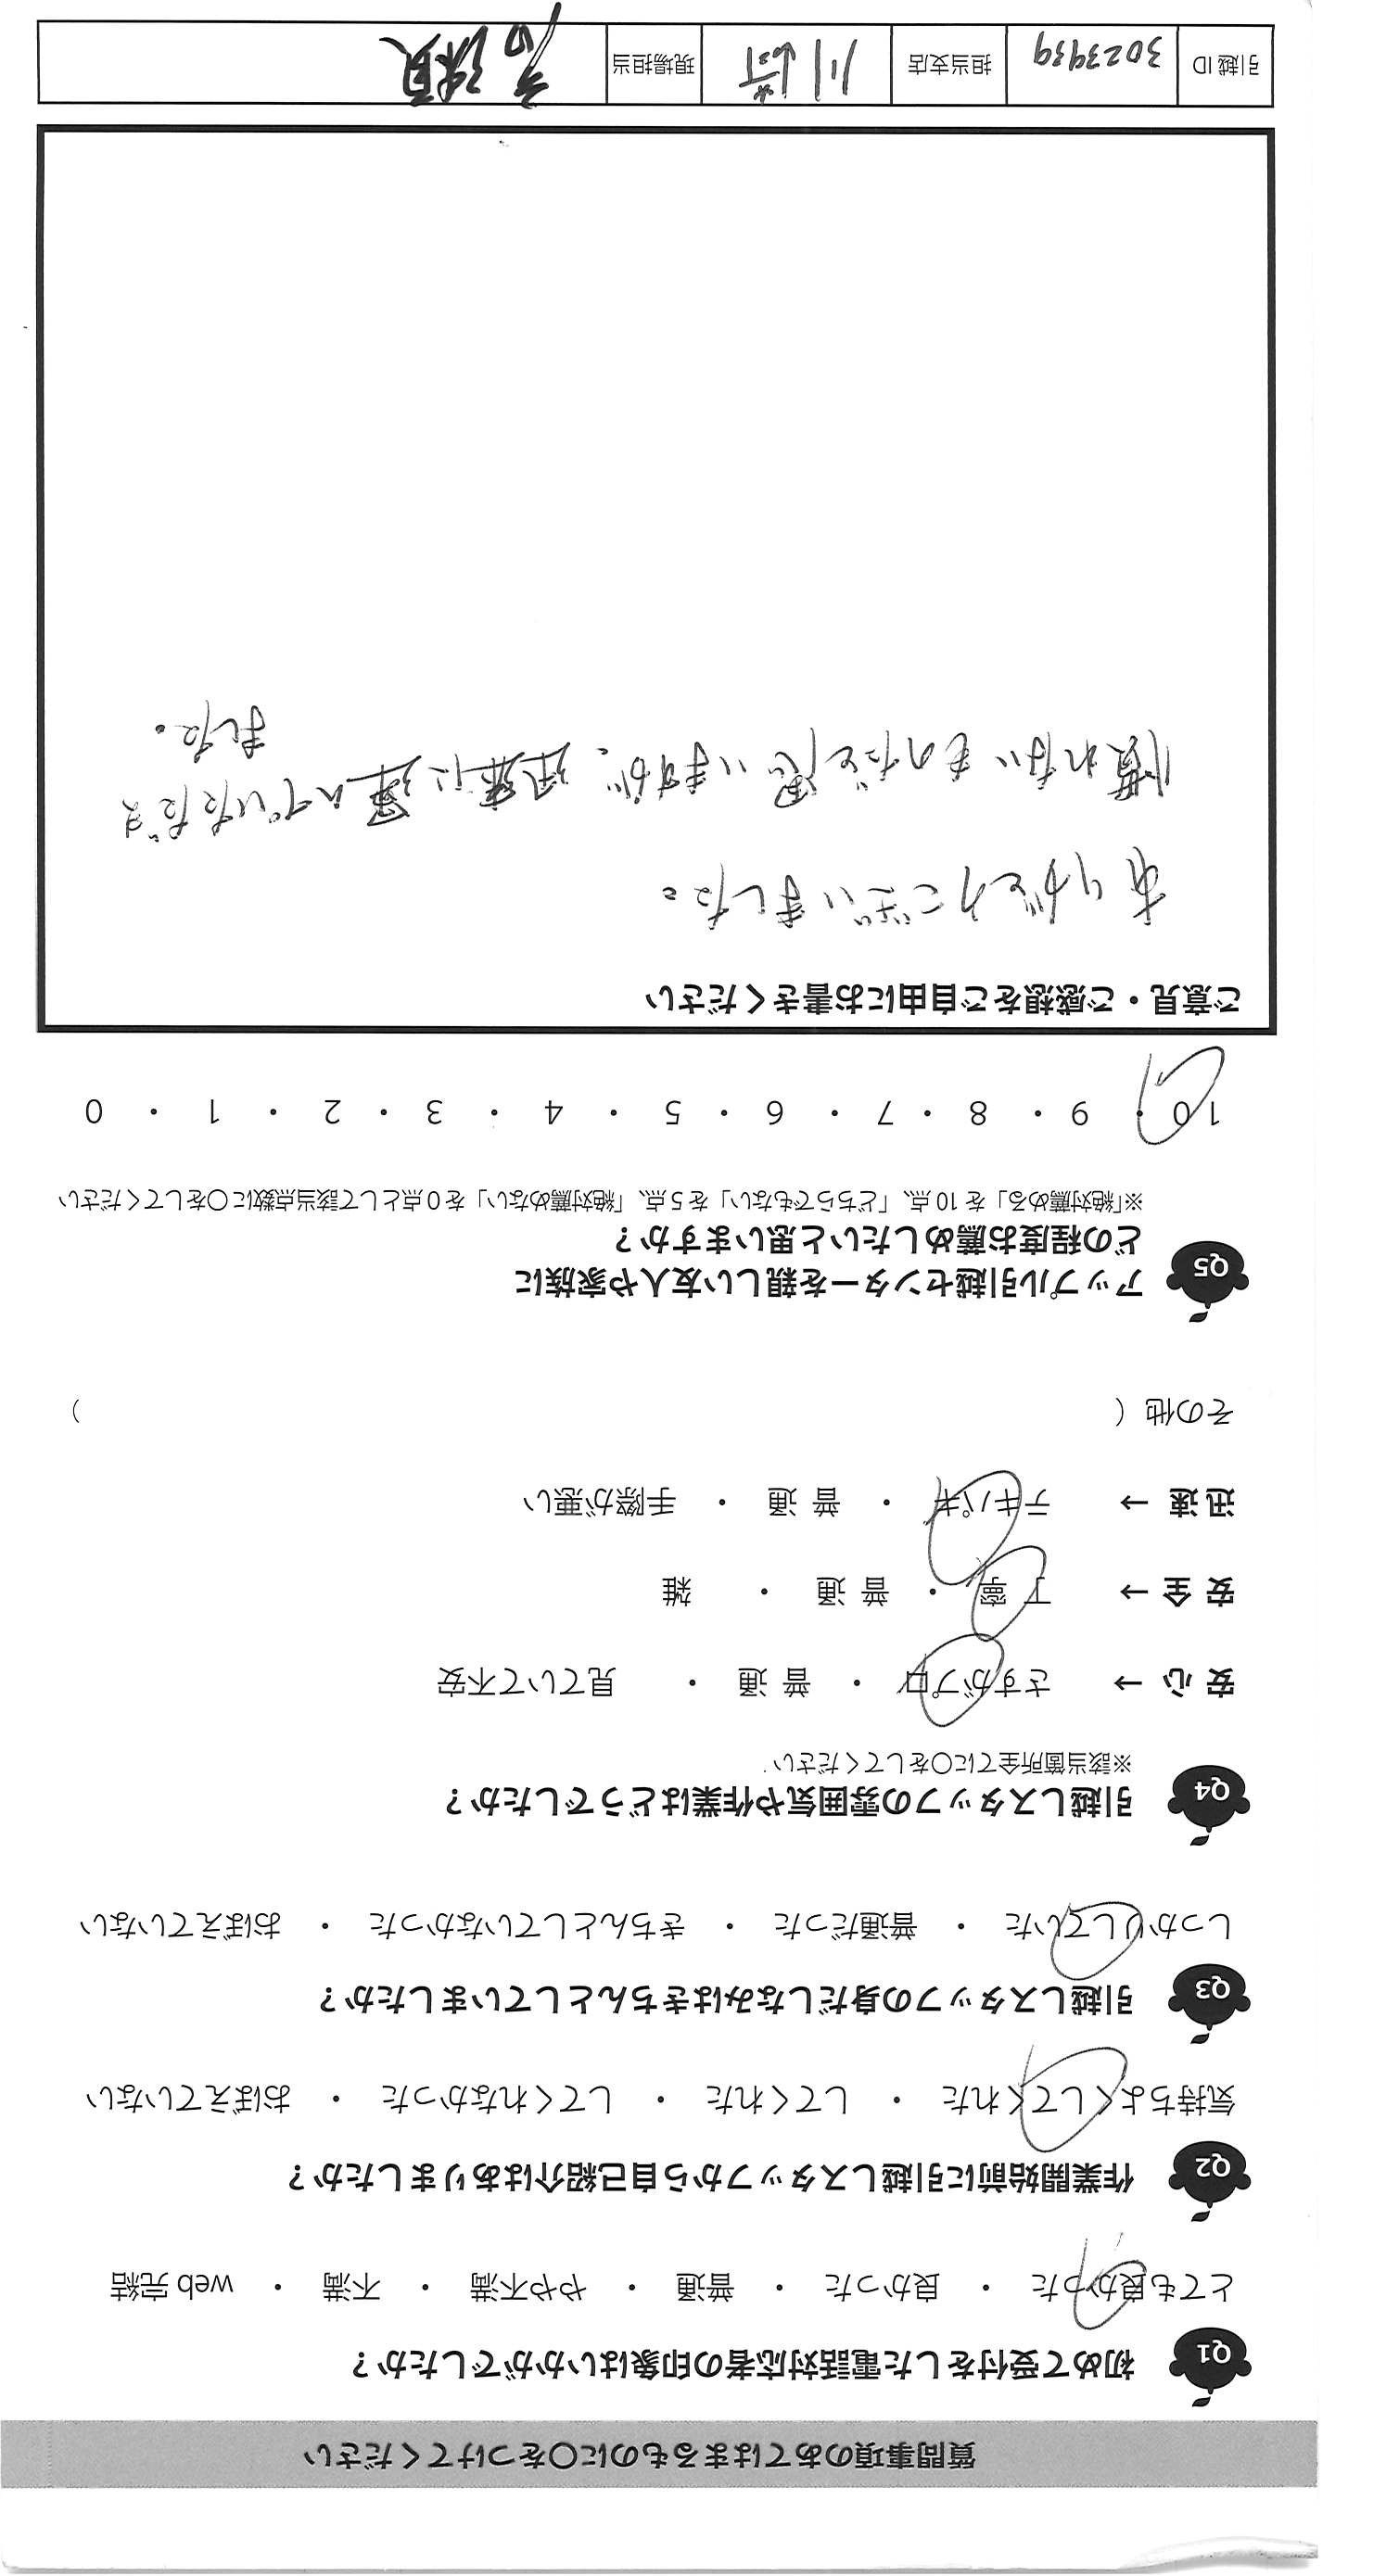 質問事項のあてはまるものに〇をつけてください
Q1 初めて受付をした電話対応者の印象はいかがでしたか？
とても良かった ・ 良かった ・ 普通 ・ やや不満 ・ 不満 ・ web 完結
Q2 作業開始前に引越しスタッフから自己紹介はありましたか？
気持ちよくしてくれた ・ してくれた ・ してくれなかった ・ おぼえていない
Q3 引越しスタッフの身だしなみはきちんとしていましたか？
しっかりしていた ・ 普通だった ・ きちんとしていなかった ・ おぼえていない
Q4 引越しスタッフの雰囲気や作業はどうでしたか？
※該当箇所全てに〇をしてください
安 心 → さすがプロ ・ 普 通 ・ 見ていて不安
安 全 → 丁 寧 ・ 普 通 ・ 雑
迅 速 → テキパキ ・ 普 通 ・ 手際が悪い
その他（ ）
Q5 アップル引越センターを親しい友人や家族に
どの程度お薦めしたいと思いますか？
※「絶対薦める」を 10 点、「どちらでもない」を 5 点、「絶対薦めない」を 0 点として該当点数に〇をしてください
10 ・ 9 ・ 8 ・ 7 ・ 6 ・ 5 ・ 4 ・ 3 ・ 2 ・ 1 ・ 0
ご意見・ご感想をご自由にお書きください
ありがとうございました。
慣れないものだと思いますが、丁寧に運んでいただき
ました。
引越 ID 3023939 担当支店 川崎 現場担当 高瀬